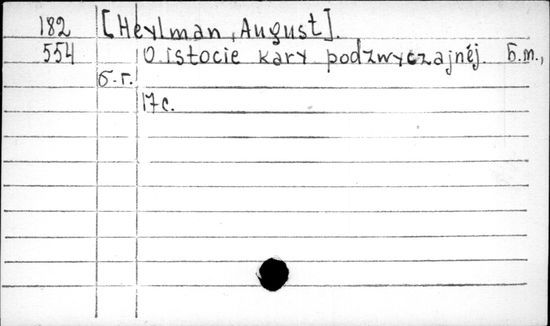 182 [Heylman, August].
554 O istocie kary podzwyczajnéj. Б.m.,
б.г.
17c.